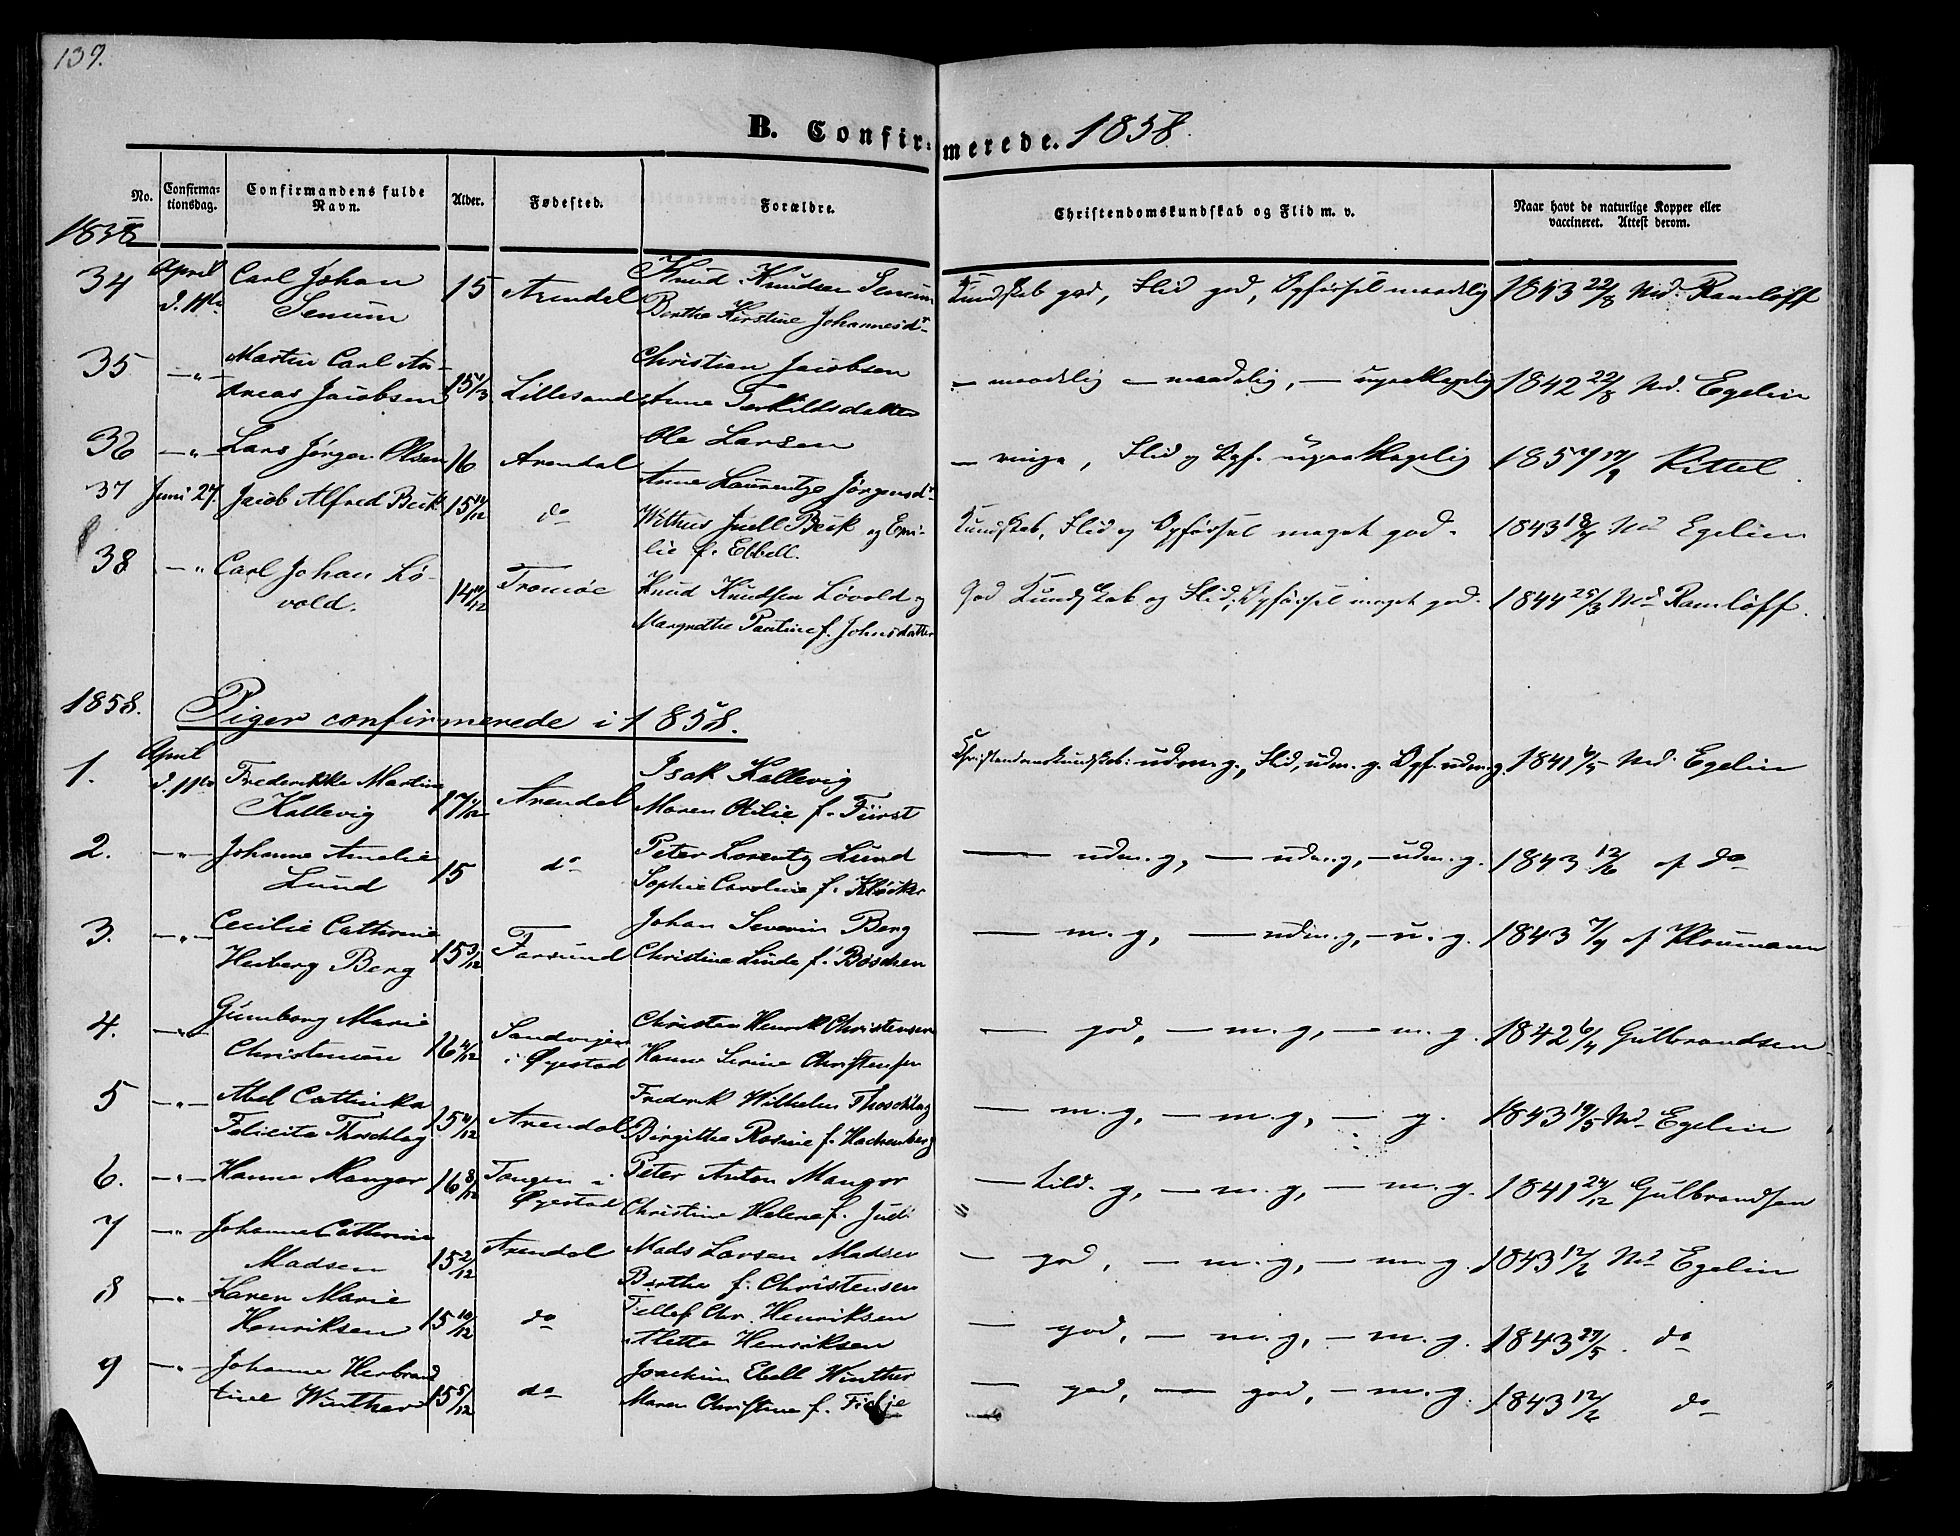 139.
B. Confirmerede. 1858.
No. Confirmationsdag. Confirmandens fulde Navn. Alder. Fødested. Forældre. Christendomskundskab og Flid m. v. Naar havt de naturlige Kopper eller vaccineret. Attest derom.
1858
34 April d. 11te Carl Johan Senum 15 Arendal Knud Knudsen Senum Berthe Kirstine Johannesdr. Kundskab god, Flid god, Opførsel maadelig 1843 22/8 Md. Ramløff
35 —"— Martin Carl Andreas Jacobsen 15 1/3 Lillesand Christian Jacobsen Anne Terkildsdatter — maadelig — maadelig, — upaaklagelig 1842 22/8 Md. Egelin
36 —"— Lars Jørgen Olsen 16 Arendal Ole Larsen Anne Laurentze Jørgensdr. — ringe, Flid og Opf. upaaklagelig 1857 Kittel.
37 Juni 27. Jacob Alfred Beck 15 do Juell Beck og Emilie f. Ebbell. Kundskab, Flid og Opførsel meget god. 1843 Md Egelin
38 —"— Carl Johan Løvold. 14 10/12 Tromøe Knud Knudsen Løvold og Margrethe Pauline f. Johnsdatter God Kundskab og Flid, Opførsel meget god. 1844 25/3 Md Ramløff.
1858. Piger confirmerede i 1858.
1. April d. 11te Frederikke Martine Kallevig 17 Arendal Isak Kallevig Maren Otilie f. Fürst Christendomskundskab: udm. g., Flid, udm. g. Opf. udm. g. 1841 6/5 Md. Egelin
2. —"— Johanne Amelie Lund 15 do Peter Lorentz Lund Sophie Caroline f. Kløcker — udm. g, — udm. g, — udm. g. 1843 12/6 af do
3. —"— Cecilie Cathrine Herberg Berg 15 3/12 Farsund Johan Severin Berg Christine Linde f. Boschen — m. g, — udm. g, — u. g. 1843 7/9 af Ploumann
4. —"— Gunborg Marie Christensen 16 Sandvigen i Øyestad Christen Henrik Christensen Hanne Serine Christensen — god, — m. g, — m. g. 1842 6/4 Gulbrandsen
5 —"— Abel Cathinka Felicita Thoschlag 15 4/12 Arendal Frederik Wilhelm Thoschlag Birgithe Rosine f. Hachenberg — m. g, — m. g, — g. 1843 19/5 Md Egelin
6. —"— Hanne Mangor 16 8/12 Tangen i Øyestad Peter Anton Mangor Christine Helene f. Juel — tild. g, — m. g, — m. g. 1841 24/12 Gulbrandsen
7 —"— Johanne Cathrine Madsen 15 2/12 Arendal Mads Larsen Madsen Berthe f. Christensen — god, — m. g, — m. g. 1843 12/6 Md Egelin
8 —"— Karen Marie Henriksen 15 10/12 do Tellef Chr. Henriksen Alette Henriksen — god, — m. g, — m. g. 1843 27/5. do
9 —"— Johanne Herbrandtine Winther 15 5/12 do Joachim Ebell Winther Maren Christine f. Fidje — god, — god, — m. g. 1843 12/6 do